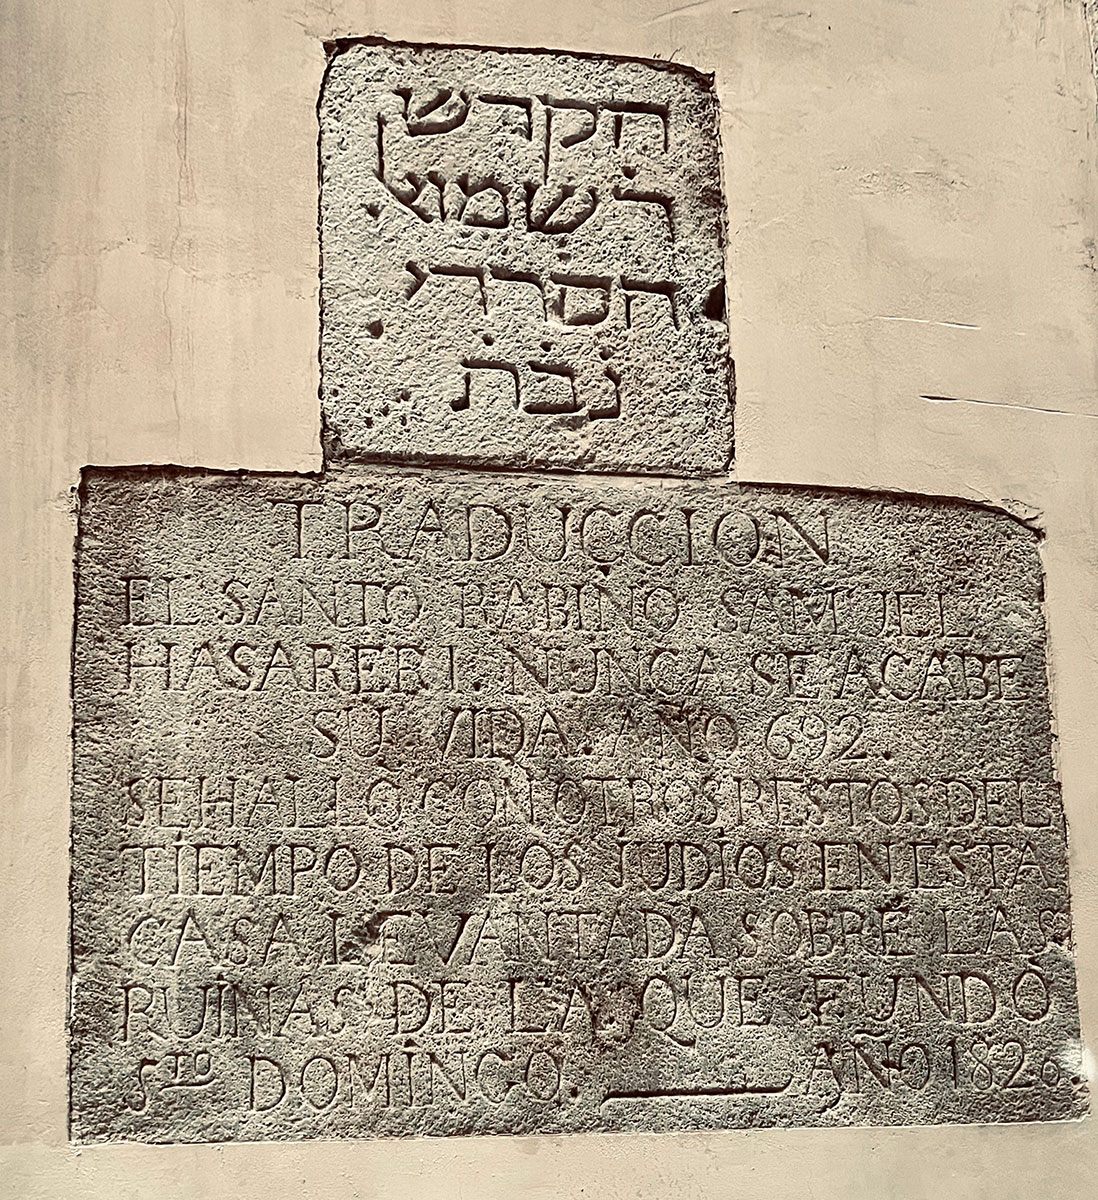 הקדש
ר̇ שמואל
הסרדי
נ̇ב̇ת̇
TRADUÇCION
EL SANTO RABINO SAMUEL
HASARERI. NUNCA SE ACABE
SU VIDA. AÑO 692.
SE HALLO CON OTROS RESTOS DEL
TIEMPO DE LOS JUDIOS EN ESTA
CASA LEVANTADA SOBRE LAS
RUINAS DE LA QUE FUNDO
STO DOMINGO. — AÑO 1820.